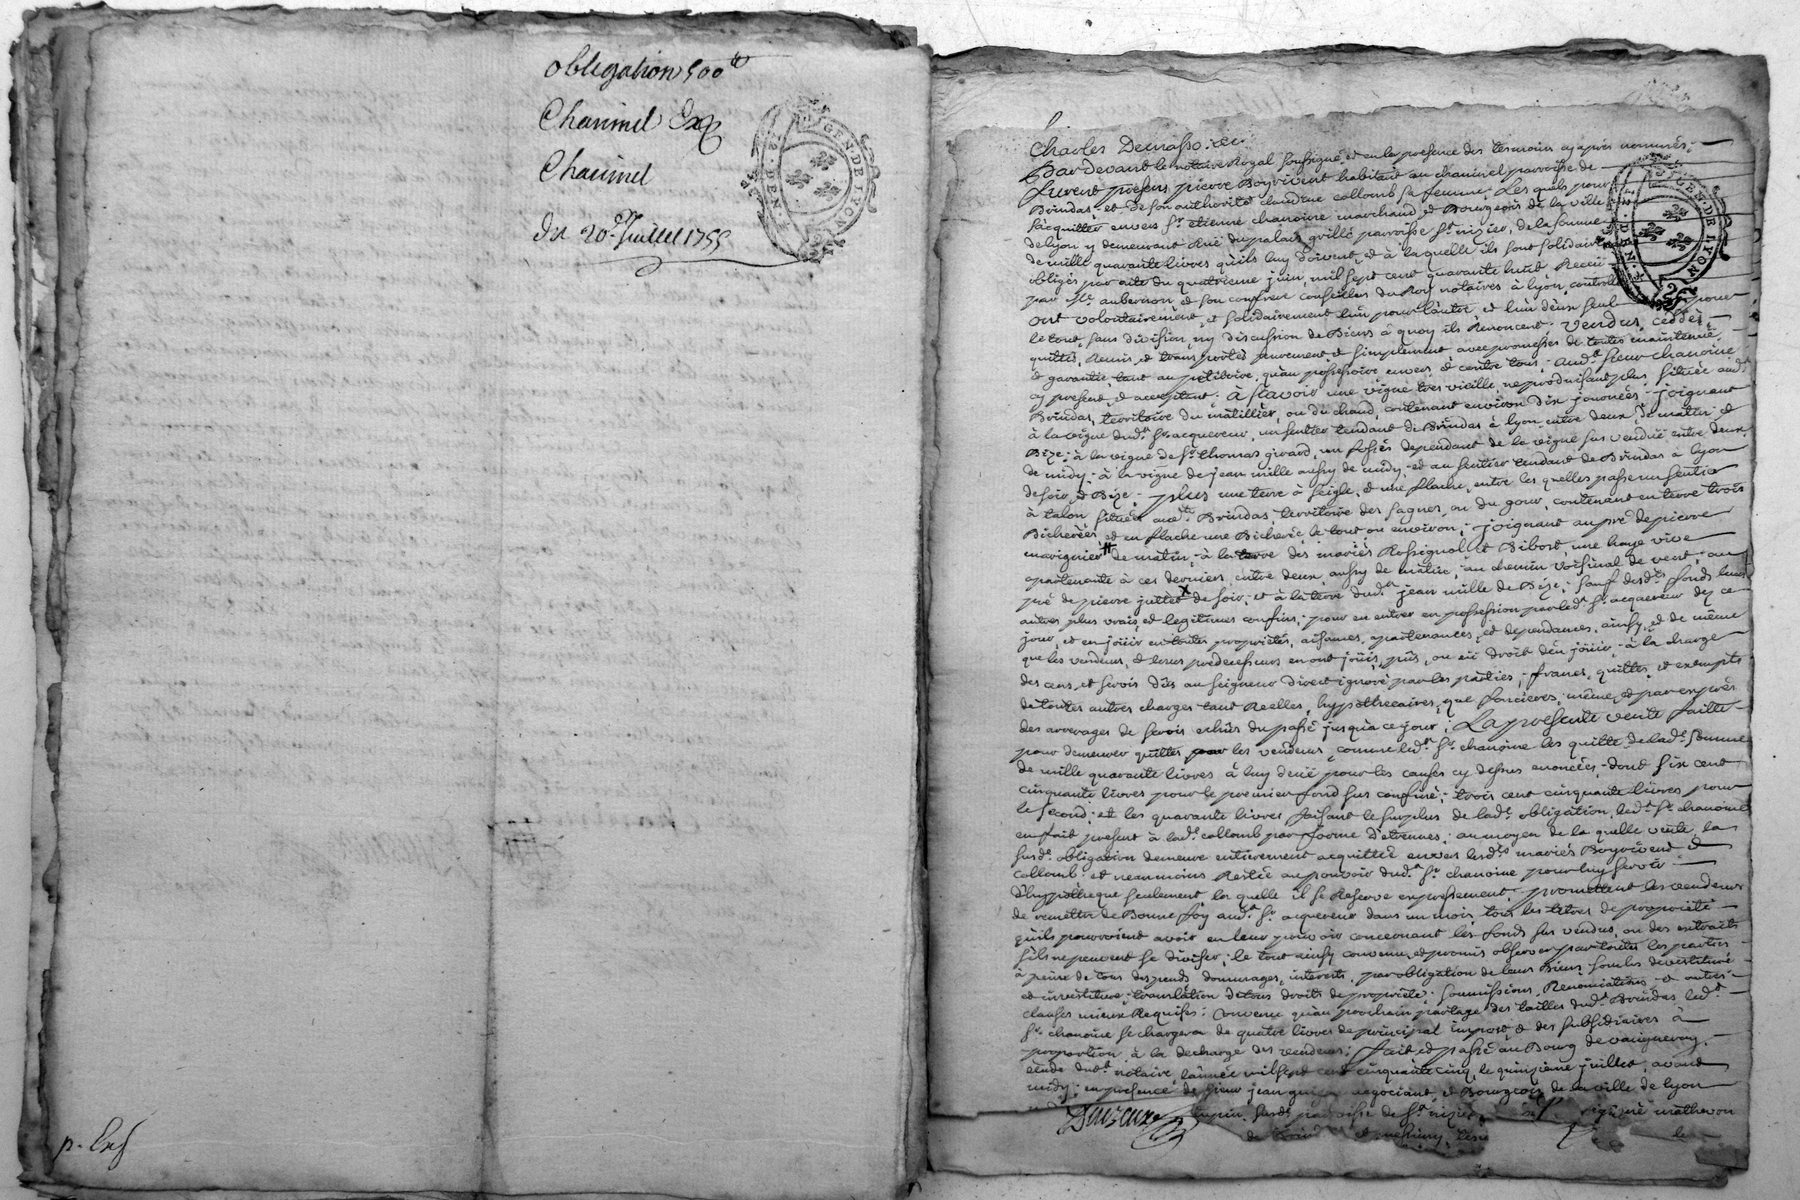 obligation 500ᵗᵗ
Charimel
Charimel
Du 20.ᵉ Juillet 1755
GEN. DE LYON
p. Exp
Charles Demasso
Pardevant le notaire Royal soussigné, et en la presence des temoins cy apres nommés;
furent presens pierre Boyrivent habitant au charimel parroisse de
Brindas et de son authorité claudine collomb sa femme. Les quels pour
s'acquitter envers sʳ etienne chanoine marchand et Bourgeois de la ville
de lyon y demeurant Rüe du palais grillé parroisse sᵗ nizier, de la somme
de mille quarante livres qu'ils luy doivent, et à laquelle ils sont solidairemᵗ
obligés par acte du quatrieme juin mil sept cent quarante huit Receu
par Mᵉ auberson et son confrere conseillers du Roy notaires à lyon, controllé
ont volontairement, et solidairement l'un pour l'autre, et l'un d'eux seul pour
le tout, sans division, ny discussion de Biens à quoy ils Renoncent; vendus, ceddés
quittés, Remis et transportés purement et simplement avec promesses de toutes maintenüe
et garantie, tant au petitoire, qu'au possessoire envers et contre tous; audᵗ sieur chanoine
cy present, et acceptant: à sçavoir une vigne tres vieille, ne produisant plus, située audᵗ
Brindas, territoire du matillier, ou du chaud, contenant environ dix journées; joignant
à la vigne dudᵗ sʳ acquereur, un sentier tendant de Brindas à lyon entre deux, de matin et
Bize; à la vigne de sʳ thomas girard, un fossés dependant de la vigne sus vendüe entre deux,
de midy; à la vigne de jean mille aussy de midy et au sentier tendant de Brindas à lyon
de soir, et Bize; plus une terre à seigle, et une flache, entre les quelles passe un sentier
à talon situées audᵗ Brindas, territoire des sagnes, ou du gour, contenant en terre trois
Bicherées et en flache une Bicherée le tout ou environ; joignant au pré de pierre
marignier # de matin; à la terre des mariés Rossignol et Bibost, une haye vive
apartenante à ces derniers, entre deux, aussy de matin; au chemin voisinal de vent; au
pré de pierre juttet X de soir, et à la terre dudᵗ jean mille de Bize; sauf desdᵗˢ fonds leurs
autres plus vrais, et legitimes confins; pour en entrer en possession par ledᵗ sʳ acquereur dez ce
jour, et en joüir en toutes proprietés, aisances, apartenances, et dependances, ainsy, et de même
que les vendeurs, et leurs predecesseurs en ont joüis, pûs, ou eü droit d'en joüir; à la charge
des cens, et servis dûs au seigneur direct ignoré par les parties; francs, quittes, et exempts
de toutes autres charges tant Reelles, hypothecaires, que foncieres; même, et par exprés
des arrerages de servis echûs du passé jusqu'à ce jour; La presente vente faitte
pour demeurer quittes par les vendeurs, comme ledᵗ sʳ chanoine les quitte de ladᵗᵉ somme
de mille quarante livres à luy deüe pour les causes cy dessus enoncées; dont six cent
cinquante livres pour le premier fond sus confiné; trois cent cinquante livres pour
le second; et les quarante livres faisant le surplus de ladᵗᵉ obligation, ledᵗ sʳ chanoine
en fait present à ladᵗᵉ collomb par forme d'etrennes; au moyen de la quelle vente, la
susdᵗᵉ obligation demeure entierement acquittée envers lesdᵗˢ mariés Boyrivent et
collomb; et neanmoins Restée au pouvoir dudᵗ sʳ chanoine pour luy servir
d'hypoteque seulement, la quelle il se Reserve expressement; promettent les vendeurs
de remettre de Bonne foy audᵗ sʳ acquereur dans un mois, tous les titres de proprieté
qu'ils pourroient avoir en leur pouvoir concernant les fonds sus vendus, ou des extraits
s'ils ne peuvent se diviser; le tout ainsy convenu, et promis observer par toutes les parties
à peine de tous despends, dommages, interests, par obligation de leurs Biens, sous les devestiture
et investiture, translation de tous droits de proprieté, soumissions, Renonciations, et autres
clauses mieux Requises; Convenu qu'au prochain partage des tailles dudᵗ Brindas ledᵗ
sʳ chanoine se chargera de quatre livres de principal impost et des subsidiaires à
proportion à la decharge des vendeurs; fait et passé au Bourg de vaugneray,
etude dudᵗ notaire, l'année mil sept cent cinquante cinq, le quinzieme juillet, avant
midy; en presence de sieur jean negociant, et Bourgeois de la ville de lyon
parroisse de sᵗ nizier mathevon